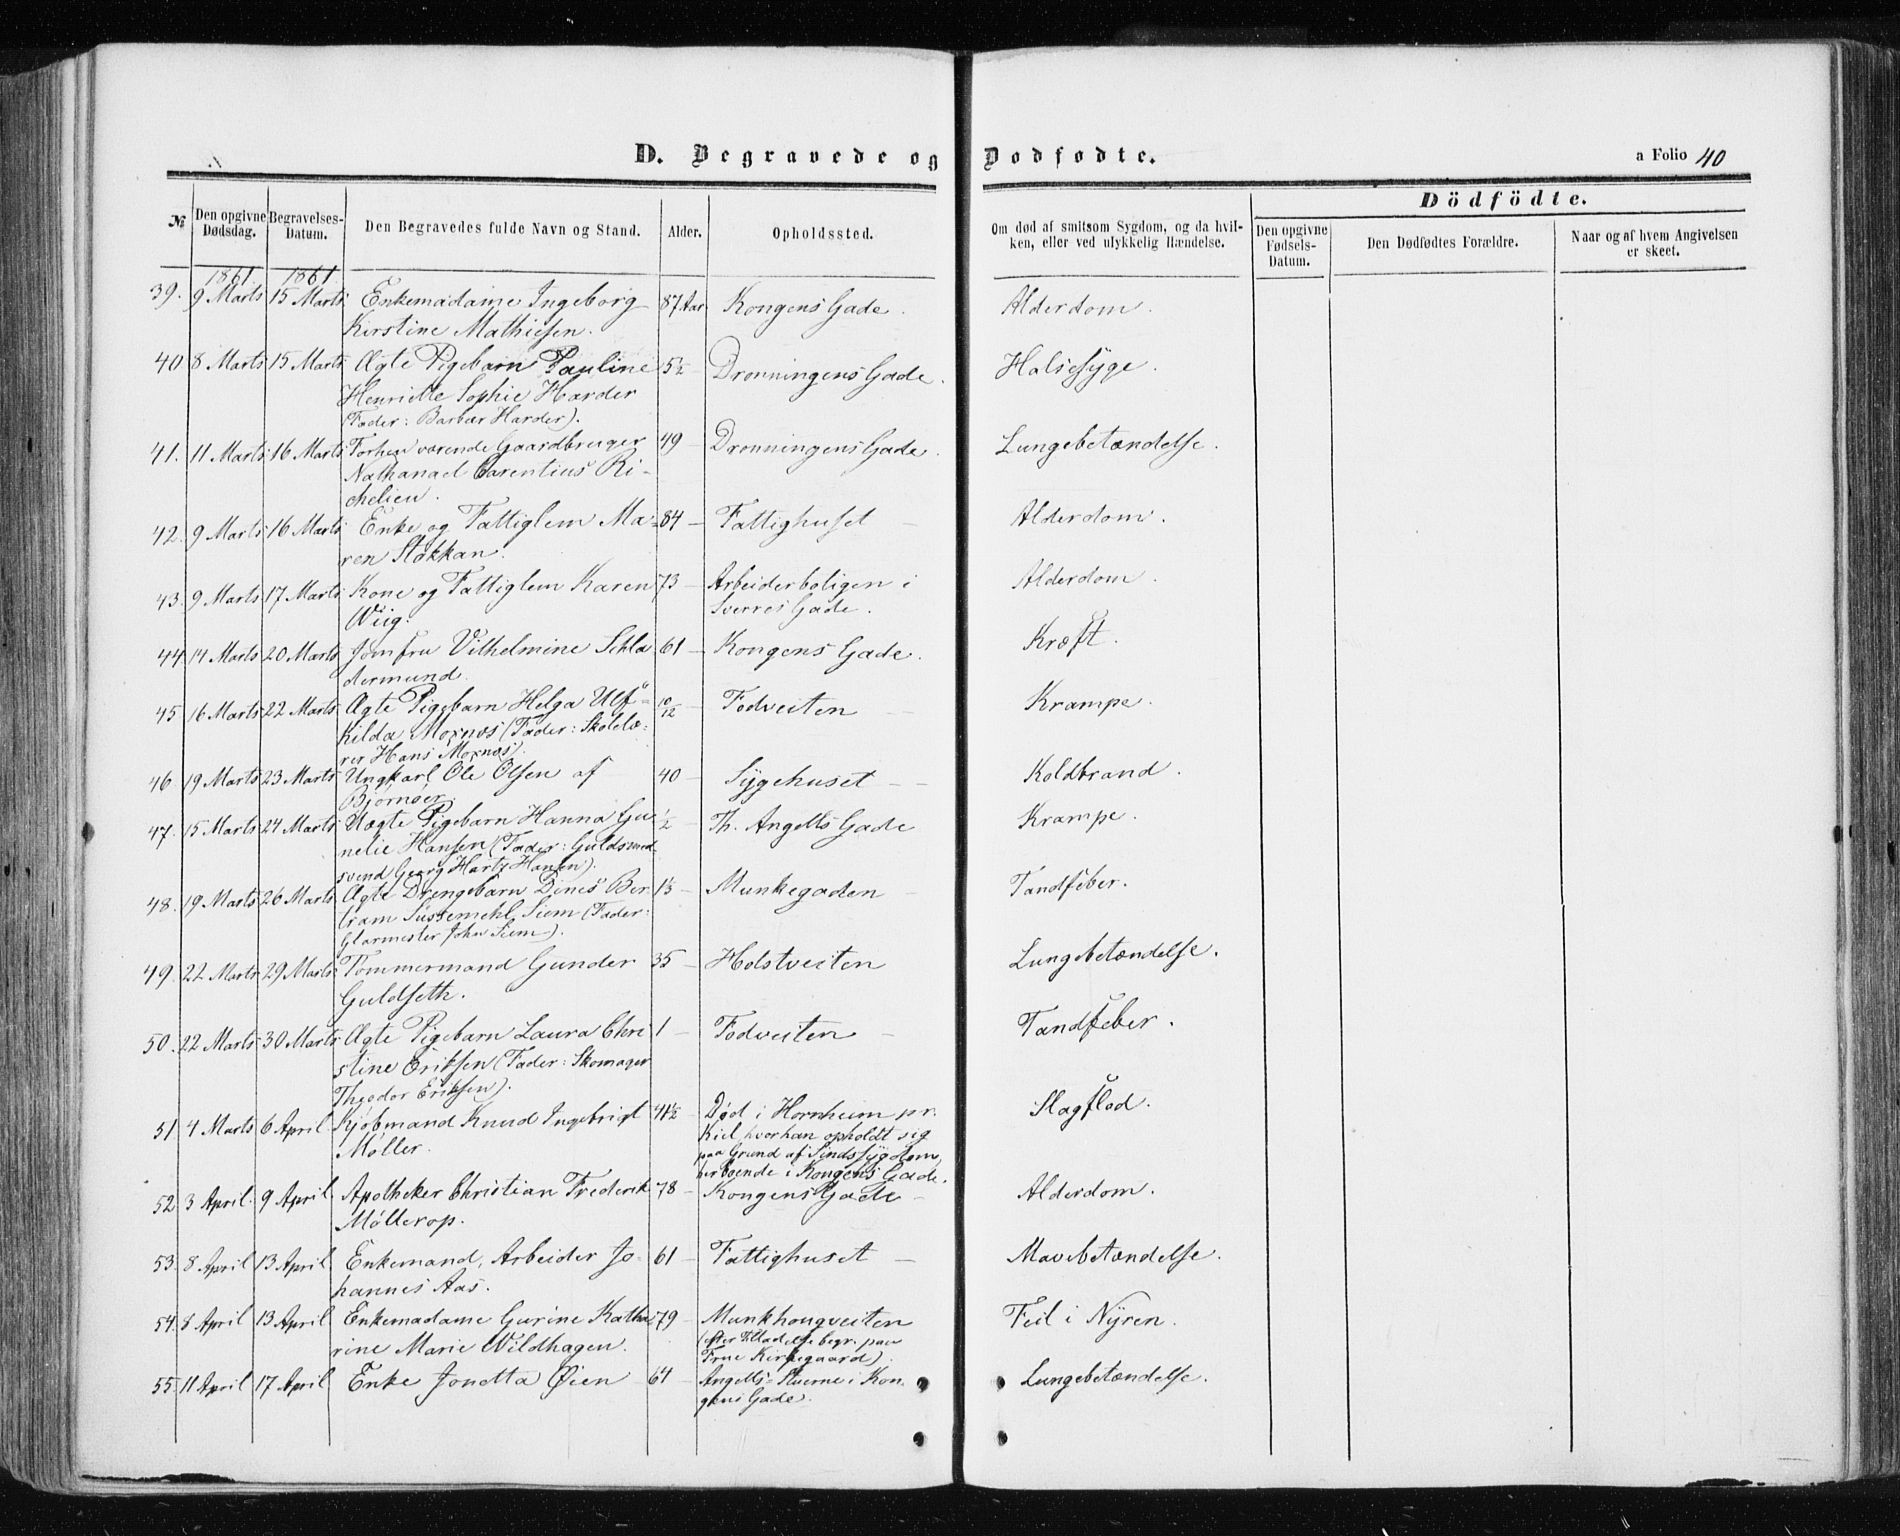 D. Begravede og Dødfødte.
a Folio 40
№ Den opgivne Dødsdag. Begravelses-Datum. Den Begravedes fulde Navn og Stand. Alder. Opholdssted. Om død af smitsom Sygdom, og da hvilken, eller ved ulykkelig Hændelse. Dödfödte. Den opgivne Fødsels-Datum. Den Dødfødtes Forældre. Naar og af hvem Angivelsen er skeet.
1861 1861
39. 9 Marts 15 Marts Enkemadame Ingeborg 87 Aar Kongens Gade. Alderdom.
Kirstine Mathiesen.
40 8 Marts 15 Marts Ægte Pigebarn Pauline 5½ Dronningens Gade. Halssyge.
Henriette Sophie Harder
(Fader: Barbær Harder).
41. 11 Marts 16 Marts Forhenværende Gaardbruger 49 – Dronningens Gade. Lungebetændelse.
Nathanael Carentius Ri-
chelieu.
42. 9 Marts 16 Marts Enke og Fattiglem Ma- 84 – Fattighuset – Alderdom.
ren Stokkan.
43. 9 Marts 17 Marts Kone og Fattiglem Karen 73 – Arbeiderboligen i Alderdom.
Wiig. Sverres Gade.
44 14 Marts 20 Marts Jomfru Vilhelmine Schla 61 – Kongens Gade. Kræft.
dermund.
45 16 Marts 22 Marts Ægte Pigebarn Helga Ulf- 10/12 – Fodveiten – Krampe.
hilda Moxnæs (Fader: Skolelæ-
rer Hans Moxnæs).
46 19 Marts 23 Marts Ungkarl Ole Olsen af 40 – Sygehuset – – Koldbrand.
Bjørnøer.
47. 15 Marts 24 Marts Uægte Pigebarn Hanna Gu ½ – Th. Angells Gade Krampe.
nelie Hansen (Fader: Guldsmed-
svend Georg Hartz Hansen).
48. 19 Marts 26 Marts Ægte Drengebarn Dines Ber 1½ – Munkegaden – Tandfeber.
tram Süssemehl Siem (Fader:
Glarmester John Siem).
49. 22 Marts 29 Marts Tømmermand Gunder 35 – Holstveiten Lungebetændelse.
Guldseth.
50. 22 Marts 30 Marts Ægte Pigebarn Laura Chri 1 – Fodveiten – Tandfeber.
stine Eriksen (Fader: Skomager
Theodor Eriksen).
51 4 Marts 6 April Kjøbmand Knud Ingebrigt 41½ – Død i Hornheim pr. Slagflod.
Møller. Kiel, hvor han opholdt sig
paa Grund af Sindssygdom,
her boende i Kongens Gade.
52 3 April 9 April Apotheker Christian Frederik 78 – Kongens Gade – Alderdom.
Møllerop.
53. 8 April 13 April Enkemand, Arbeider Jo- 61 – Fattighuset – Mavebetændelse.
hannes Aas.
54. 8 April 13 April Enkemadame Gurine Katha 79 – Munkhougveiten Feil i Nyren.
rine Marie Wildhagen. (efter Tilladelse begr. paa
Frue Kirkegaard).
55. 11 April 17 April Enke Jonetta Øien – 64 Angells-Stuerne i Kon- Lungebetændelse.
gens Gade.